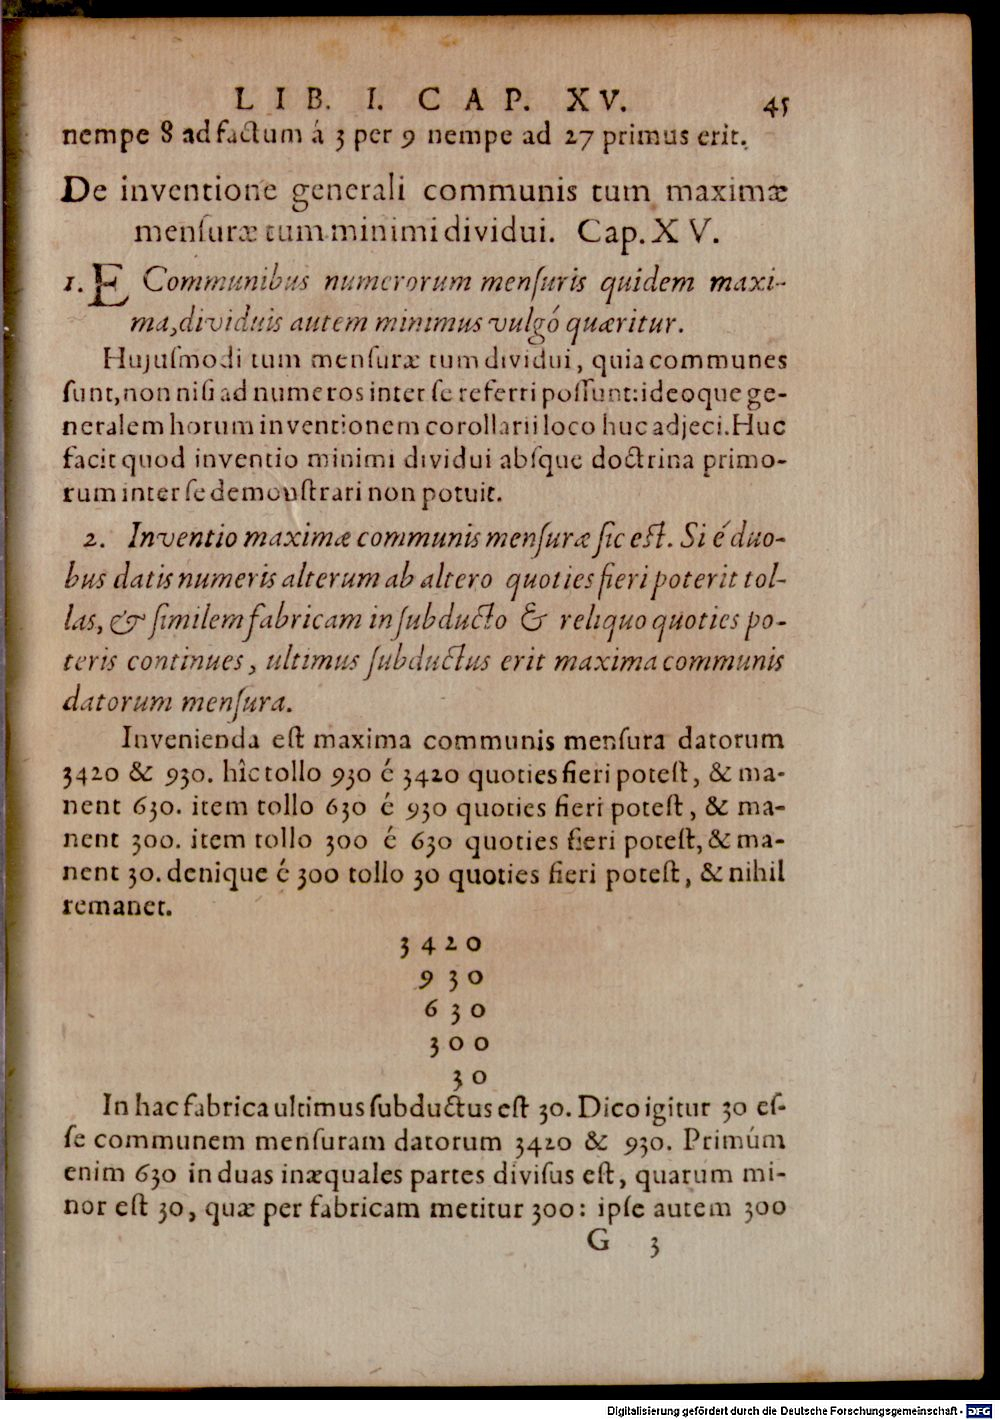 LIB. I. CAP. XV. 45
nempe 8 ad factum á 3 per 9 nempe ad 27 primus erit.
De inventione generali communis tum maximæ
menſuræ tum minimi dividui. Cap. XV.
1. E Communibus numerorum menſuris quidem maxi-
ma, dividuis autem minimus vulgó quæritur.
Hujuſmodi tum menſuræ tum dividui, quia communes
ſunt, non niſi ad numeros inter ſe referri poſſunt: ideoque ge-
neralem horum inventionem corollarii loco huc adjeci. Huc
facit quod inventio minimi dividui abſque doctrina primo-
rum inter ſe demonſtrari non potuit.
2. Inventio maximæ communis menſuræ ſic eſt. Si é duo-
bus datis numeris alterum ab altero quoties fieri poterit tol-
las, & ſimilem fabricam in ſubducto & reliquo quoties po-
teris continues, ultimus ſubductus erit maxima communis
datorum menſura.
Invenienda eſt maxima communis menſura datorum
3420 & 930. hîc tollo 930 é 3420 quoties fieri poteſt, & ma-
nent 630. item tollo 630 é 930 quoties fieri poteſt, & ma-
nent 300. item tollo 300 é 630 quoties fieri poteſt, & ma-
nent 30. denique é 300 tollo 30 quoties fieri poteſt, & nihil
remanet.
3420
930
630
300
30
In hac fabrica ultimus ſubductus eſt 30. Dico igitur 30 eſ-
ſe communem menſuram datorum 3420 & 930. Primúm
enim 630 in duas inæquales partes diviſus eſt, quarum mi-
nor eſt 30, quæ per fabricam metitur 300: ipſe autem 300
G 3
Digitalisierung gefördert durch die Deutsche Forschungsgemeinschaft - DFG